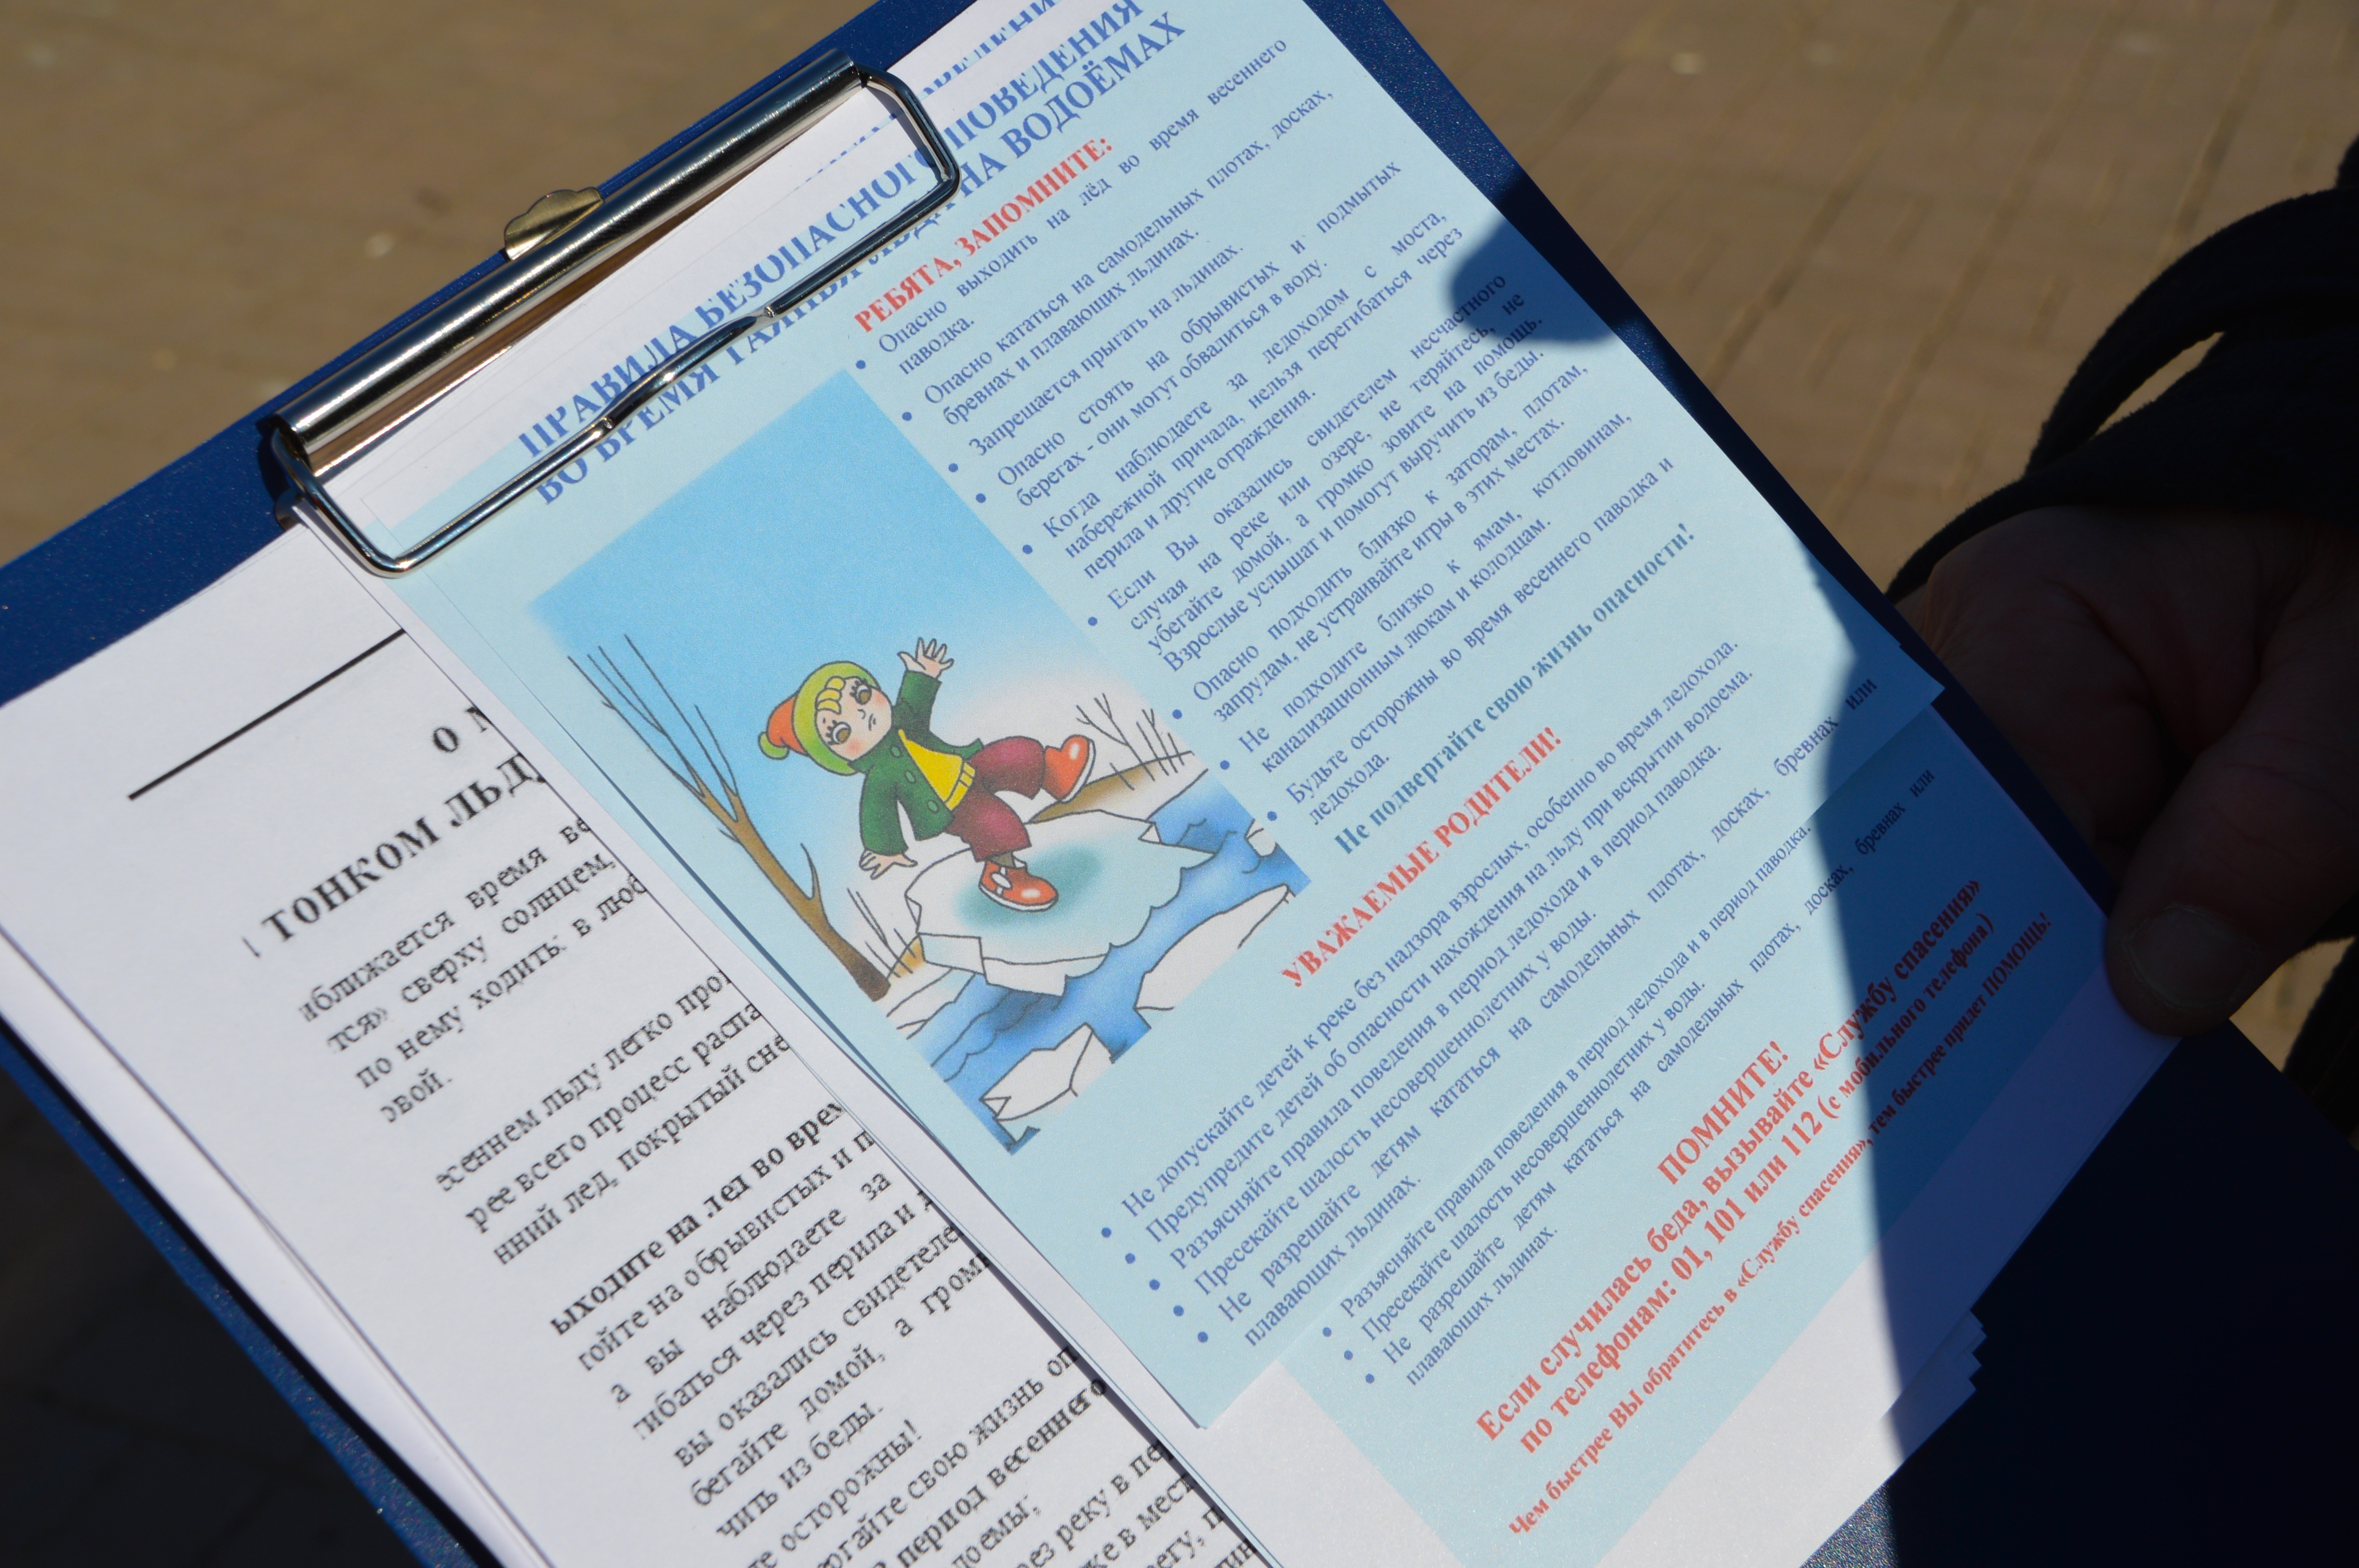 ПРАВИЛА БЕЗОПАСНОГО ПОВЕДЕНИЯ
ВО ВРЕМЯ ТАЯНЬЯ ЛЬДА НА ВОДОЁМАХ
РЕБЯТА, ЗАПОМНИТЕ:
• Опасно выходить на лёд во время весеннего
паводка.
• Опасно кататься на самодельных плотах, досках,
бревнах и плавающих льдинах.
• Запрещается прыгать на льдинах.
• Опасно стоять на обрывистых и подмытых
берегах - они могут обвалиться в воду.
• Когда наблюдаете за ледоходом с моста,
набережной причала, нельзя перегибаться через
перила и другие ограждения.
• Если Вы оказались свидетелем несчастного
случая на реке или озере, не теряйтесь, не
убегайте домой, а громко зовите на помощь.
Взрослые услышат и помогут выручить из беды.
• Опасно подходить близко к заторам, плотам,
запрудам, не устраивайте игры в этих местах.
• Не подходите близко к ямам, котловинам,
канализационным люкам и колодцам.
• Будьте осторожны во время весеннего паводка и
ледохода.
Не подвергайте свою жизнь опасности!
УВАЖАЕМЫЕ РОДИТЕЛИ!
• Не допускайте детей к реке без надзора взрослых, особенно во время ледохода.
• Предупредите детей об опасности нахождения на льду при вскрытии водоема.
• Разъясняйте правила поведения в период ледохода и в период паводка.
• Пресекайте шалость несовершеннолетних у воды.
• Не разрешайте детям кататься на самодельных плотах, досках, бревнах или
плавающих льдинах.
• Разъясняйте правила поведения в период ледохода и в период паводка.
• Пресекайте шалость несовершеннолетних у воды.
• Не разрешайте детям кататься на самодельных плотах, досках, бревнах или
плавающих льдинах.
ПОМНИТЕ!
Если случилась беда, вызывайте «Службу спасения»
по телефонам: 01, 101 или 112 (с мобильного телефона)
Чем быстрее ВЫ обратитесь в «Службу спасения», тем быстрее придет ПОМОЩЬ!
О М
ТОНКОМ ЛЬДУ
аближается время ве
тся» сверху солнцем,
по нему ходить: в люб
овой.
есеннем льду легко про
рее всего процесс распа
нний лед, покрытый сне
ыходите на лед во врем
тойте на обрывистых и п
а вы наблюдаете за
гибаться через перила и д
вы оказались свидетеле
бегайте домой, а гром
чить из беды.
те осторожны!
ргайте свою жизнь оп
в период весеннего
доемы;
рез реку в пе
же в мест
регу, п